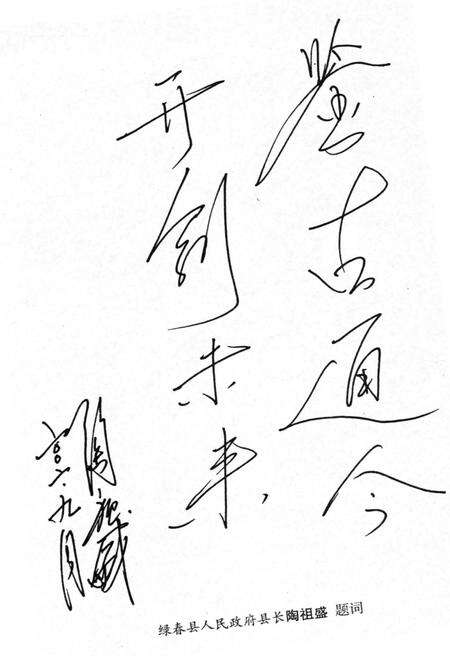 鉴古通今
开创未来
陶祖盛
二〇〇六.九月
绿春县人民政府县长陶祖盛 题词